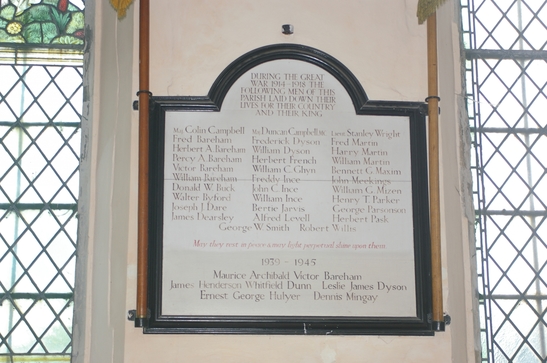 DURING THE GREAT
WAR 1914-1918 THE
FOLLOWING MEN OF THIS
PARISH LAID DOWN THEIR
LIVES FOR THEIR COUNTRY
AND THEIR KING
Colin Campbell Duncan Campbell Stanley Wright
Fred Bareham Frederick Dyson Fred Martin
Herbert A. Bareham William Dyson Harry Martin
Percy A. Bareham Herbert French William Martin
Victor Bareham William C. Glyn Bennett G. Maxim
William Bareham Freddy Ince John Meekings
Donald W. Buck John C. Ince William G. Mizen
Walter Byford William Ince Henry T. Parker
Joseph J. Dare Bertie Jarvis George Parsonson
James Dearsley Alfred Levell Herbert Pask
George W. Smith Robert Willis
May they rest in peace & may light perpetual shine upon them
1939 - 1945
Maurice Archibald Victor Bareham
James Henderson Whitfield Dunn Leslie James Dyson
Ernest George Hulyer Dennis Mingay